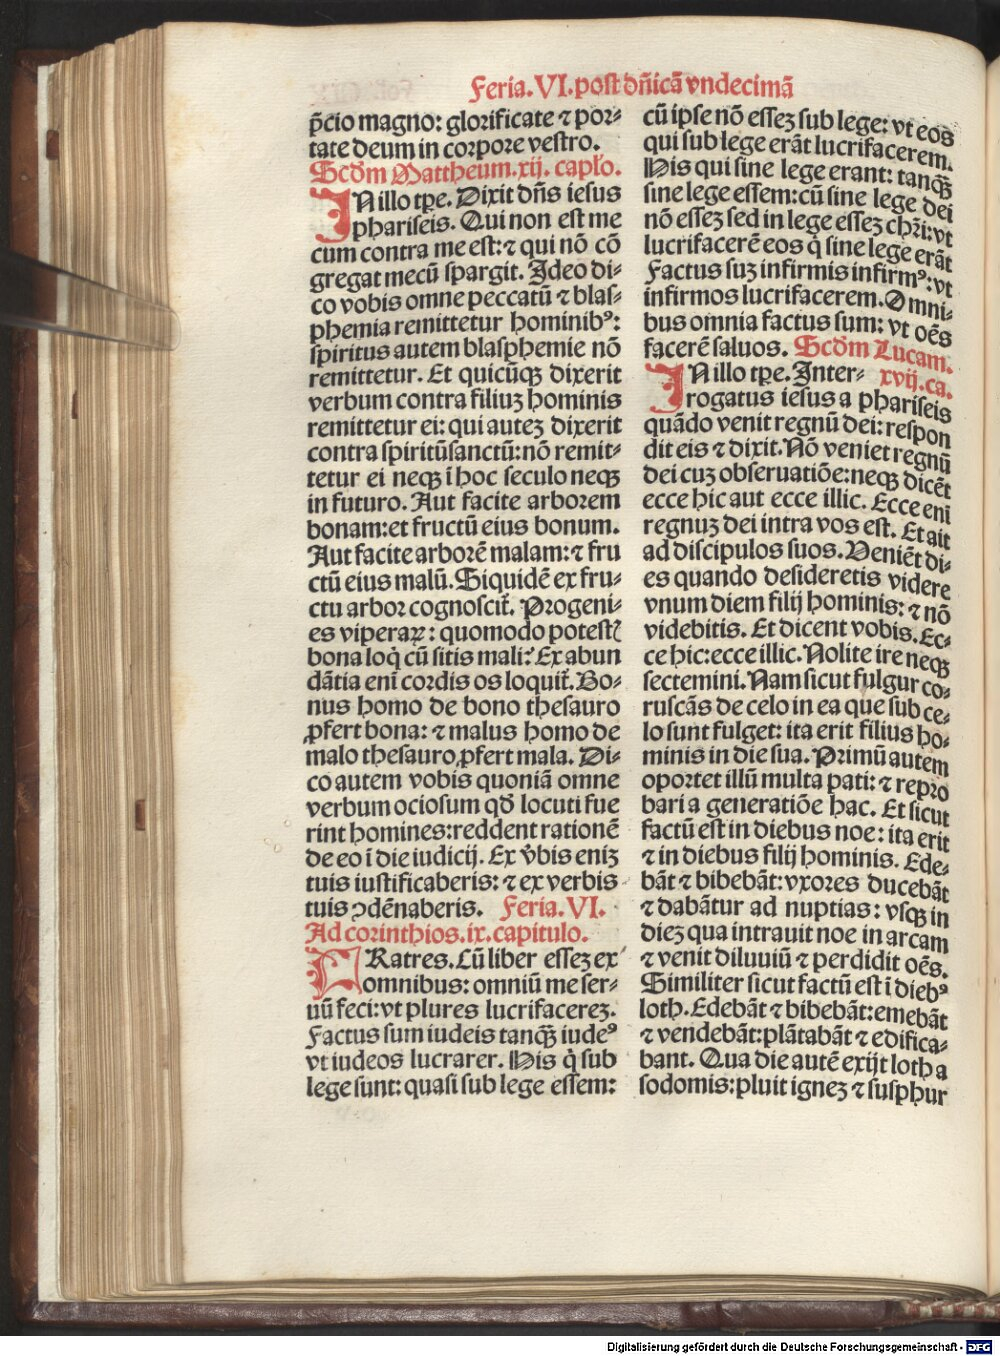 Feria. VI. post dñicã vndecimã
p̃cio magno: glorificate ⁊ por-
tate deum in corpore vestro.
Scd̃m Mattheum. xij. capło.
IN illo tp̃e. Dixit dñs iesus
phariseis. Qui non est me
cum contra me est: ⁊ qui nõ cõ
gregat mecũ spargit. Ideo di-
co vobis omne peccatũ ⁊ blas-
phemia remittetur hominibꝰ:
spiritus autem blasphemie nõ
remittetur. Et quicũqꝫ dixerit
verbum contra filiuꝫ hominis
remittetur ei: qui auteꝫ dixerit
contra spiritũsanctũ: nõ remit-
tetur ei neqꝫ ĩ hoc seculo neqꝫ
in futuro. Aut facite arborem
bonam: et fructũ eius bonum.
Aut facite arborẽ malam: ⁊ fru
ctũ eius malũ. Siquidẽ ex fru-
ctu arbor cognoscit̃. Progeni-
es viperaꝝ: quomodo potest̃
bona loq̇ cũ sitis mali? Ex abun
dãtia enĩ cordis os loquit̃. Bo-
nus homo de bono thesauro
ꝓfert bona: ⁊ malus homo de
malo thesauro ꝓfert mala. Di-
co autem vobis quoniã omne
verbum ociosum qd̃ locuti fue
rint homines: reddent rationẽ
de eo ĩ die iudicij. Ex v̾bis eniꝫ
tuis iustificaberis: ⁊ ex verbis
tuis ↄdẽnaberis. Feria. VI.
Ad corinthios. ix. capitulo.
FRatres. Cũ liber esseꝫ ex
omnibus: omniũ me ser-
uũ feci: vt plures lucrifacereꝫ.
Factus sum iudeis tanqꝫ̃ iudeꝰ
vt iudeos lucrarer. His q̇ sub
lege sunt: quasi sub lege essem:
cũ ipse nõ esseꝫ sub lege: vt eos
qui sub lege erãt lucrifacerem.
His qui sine lege erant: tanqꝫ̃
sine lege essem: cũ sine lege dei
nõ esseꝫ sed in lege esseꝫ chr̃i: vt
lucrifacerẽ eos q̇ sine lege erãt
Factus suꝫ infirmis infirmꝰ: vt
infirmos lucrifacerem. Omni-
bus omnia factus sum: vt oẽs
facerẽ saluos. Scd̃m Lucam.
xvij. ca.
IN illo tp̃e. Inter-
rogatus iesus a phariseis
quãdo venit regnũ dei: respon
dit eis ⁊ dixit. Nõ veniet regnũ
dei cuꝫ obseruatiõe: neqꝫ dicẽt
ecce hic aut ecce illic. Ecce enĩ
regnuꝫ dei intra vos est. Et ait
ad discipulos suos. Veniẽt di-
es quando desideretis videre
vnum diem filij hominis: ⁊ nõ
videbitis. Et dicent vobis. Ec-
ce hic: ecce illic. Nolite ire neqꝫ
sectemini. Nam sicut fulgur co-
ruscãs de celo in ea que sub ce-
lo sunt fulget: ita erit filius ho-
minis in die sua. Primũ autem
oportet illũ multa pati: ⁊ repro
bari a generatiõe hac. Et sicut
factũ est in diebus noe: ita erit
⁊ in diebus filij hominis. Ede-
bãt ⁊ bibebãt: vxores ducebãt
⁊ dabãtur ad nuptias: vsqꝫ in
dieꝫ qua intrauit noe in arcam
⁊ venit diluuiũ ⁊ perdidit oẽs.
Similiter sicut factũ est ĩ diebꝰ
loth. Edebãt ⁊ bibebãt: emebãt
⁊ vendebãt: plãtabãt ⁊ edifica-
bant. Qua die autẽ exijt loth a
sodomis: pluit igneꝫ ⁊ susphur
Digitalisierung gefördert durch die Deutsche Forschungsgemeinschaft - DFG